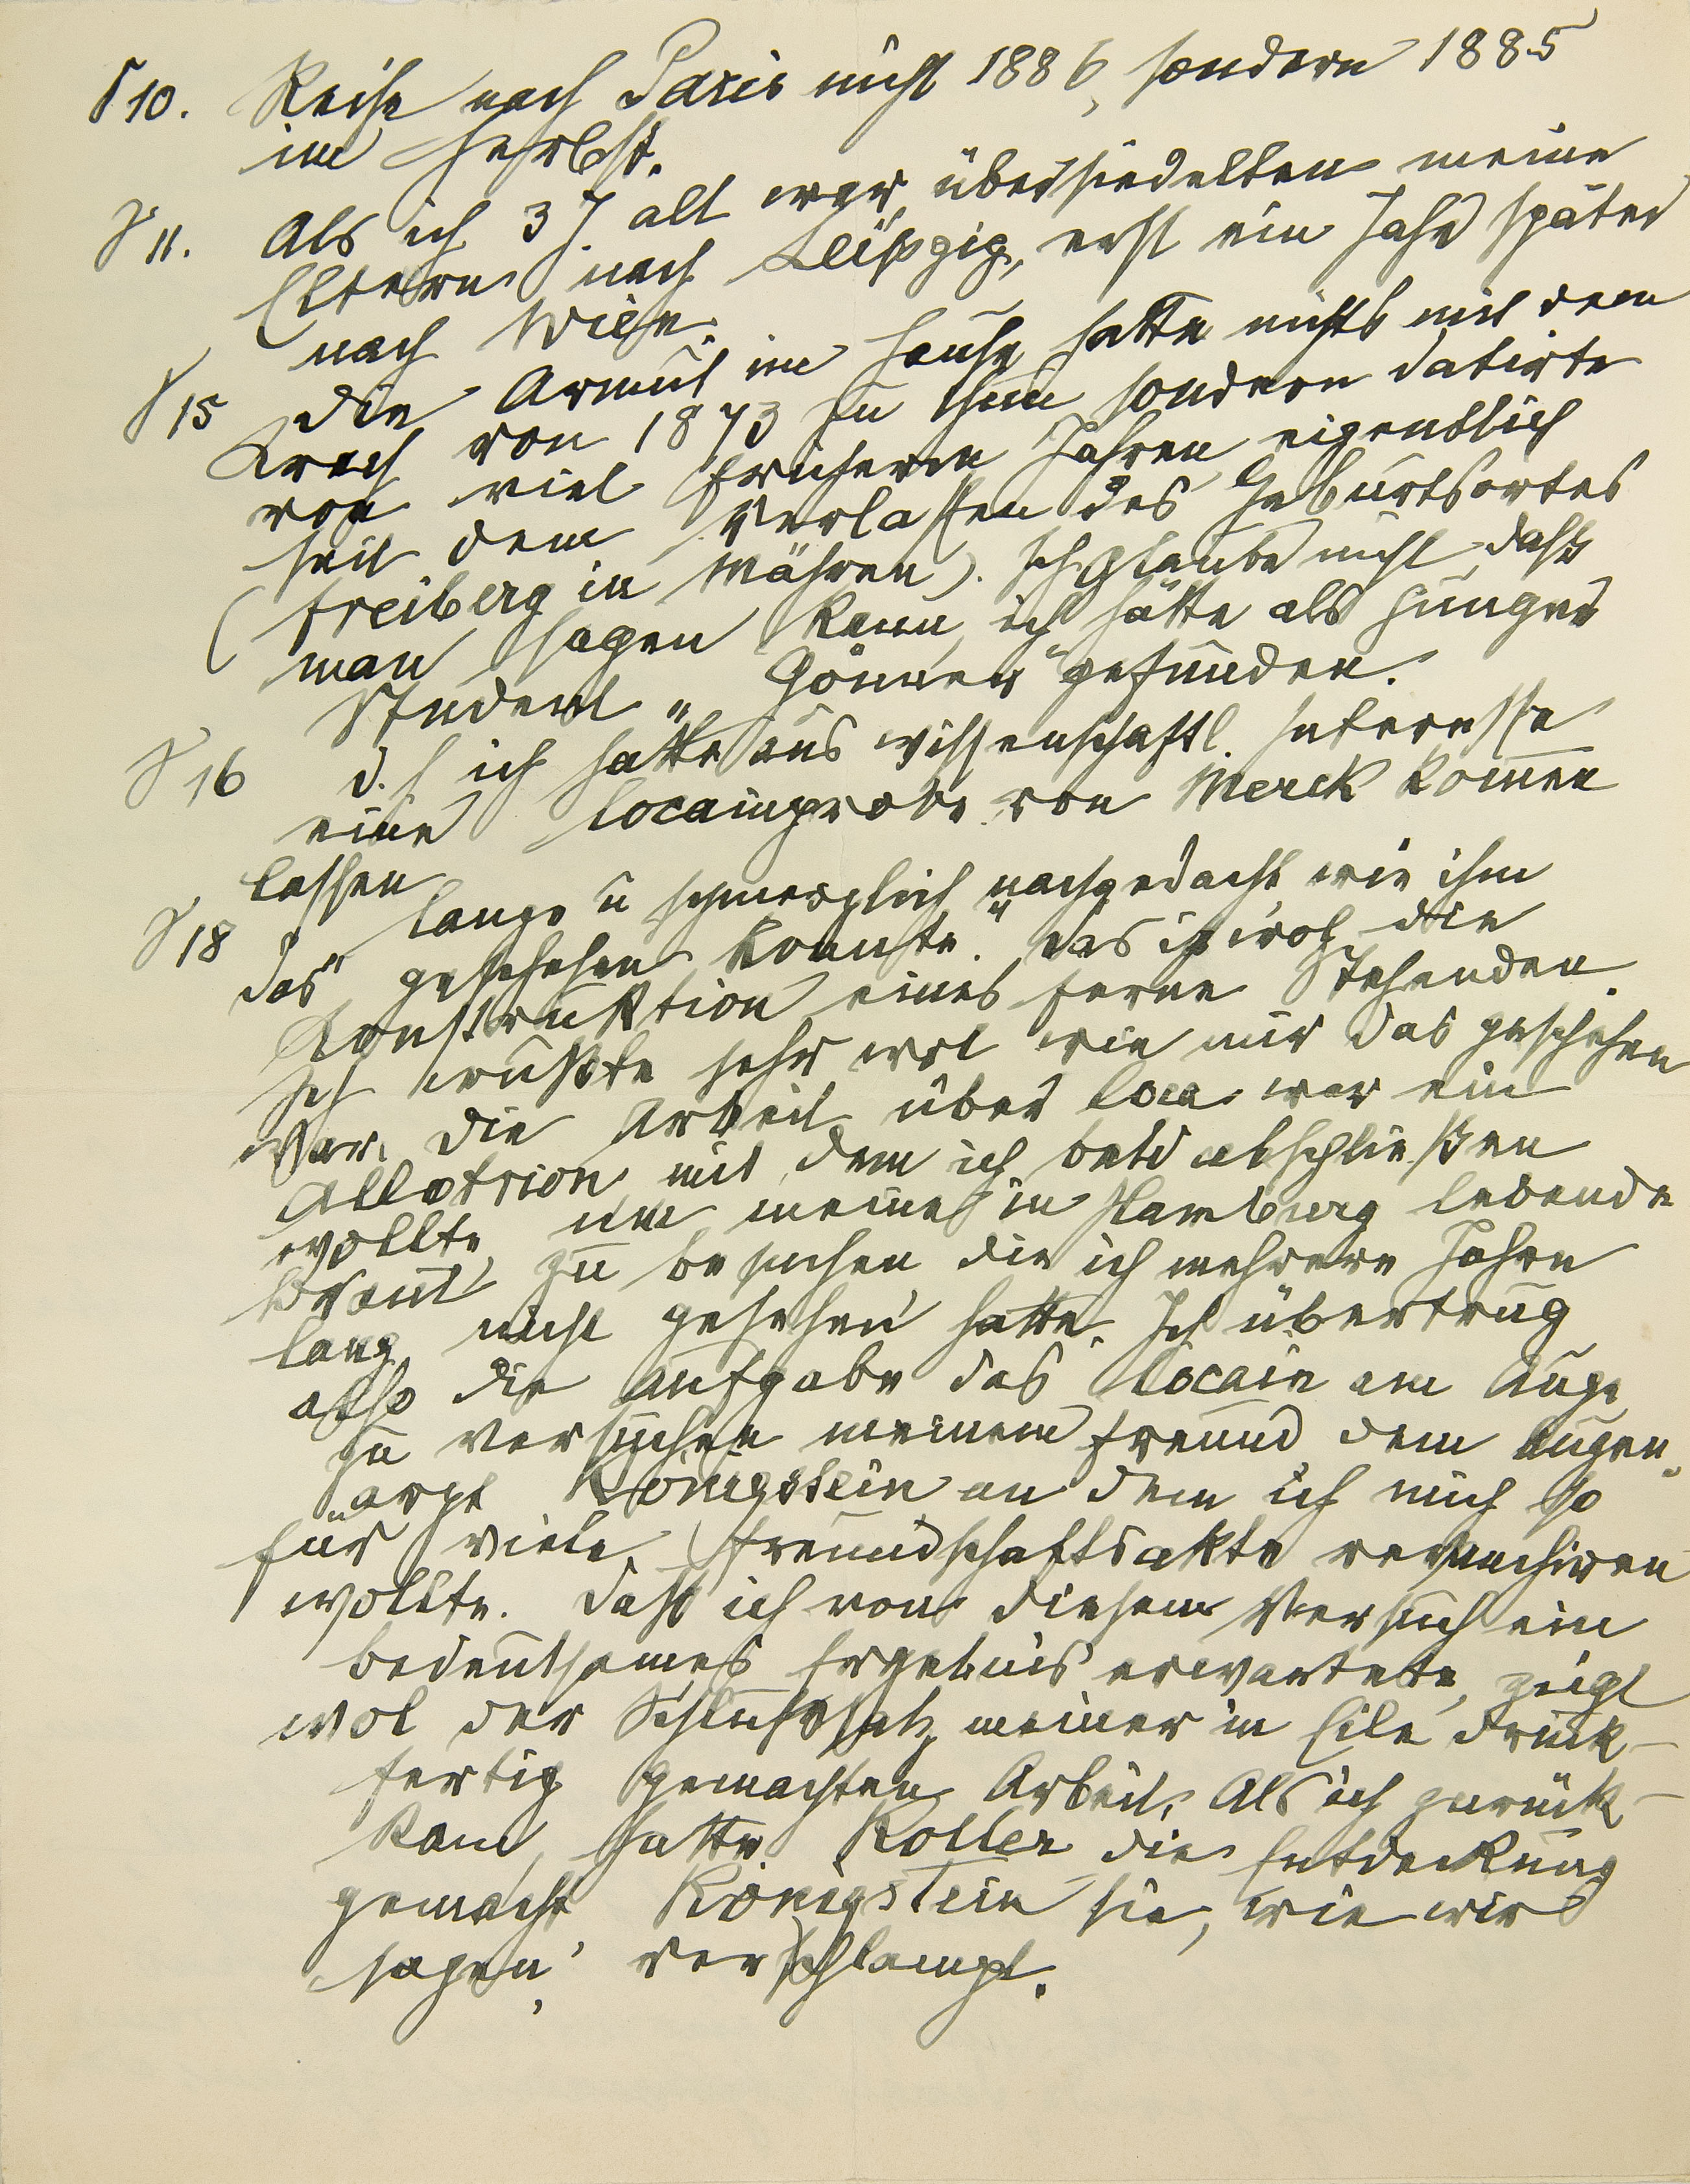 S 10. Reise nach Paris nicht 1886, sondern 1885
im Herbst.
S 11. Als ich 3 J. alt war, übersiedelten meine
Eltern nach Leipzig, erst ein Jahr später
nach Wien.
S 15 Die Armut im Hause hatte nichts mit dem
Krach von 1873 zu thun sondern datirte
von viel früheren Jahren, eigentlich
seit dem Verlassen des Geburtsortes
(Freiberg in Mähren). Ich glaube nicht, daß
man sagen kann, ich hätte als junger
Student „Gönner" gefunden.
S 16 d. h ich hatte aus wissenschaftl. Interesse
eine Cocainprobe von Merck kommen
lassen
S 18 „lange u schmerzlich nachgedacht, wie ihm
das geschehen konnte." Das ist wol die
Konstruktion eines ferne Stehenden.
Ich wußte sehr wol wie mir das geschehen
war. Die Arbeit über Coca war ein
Allotrion mit dem ich bald abschließen
wollte, um meine in Hamburg lebende
Braut zu besuchen die ich mehrere Jahre
lang nicht gesehen hatte. Ich übertrug
also die Aufgabe das Cocain am Auge
zu versuchen meinem Freund, dem Augen-
arzt Königstein an dem ich mich so
für viele Freundschaftsakte revanchiren
wollte. Daß ich von diesem Versuch ein
bedeutsames Ergebnis erwartete, zeigt
wol der Schlußsatz meiner in Eile druck-
fertig gemachten Arbeit. Als ich zurück-
kam, hatte Koller die Entdeckung
gemacht Königstein sie, wie wir
sagen, verschlampt.